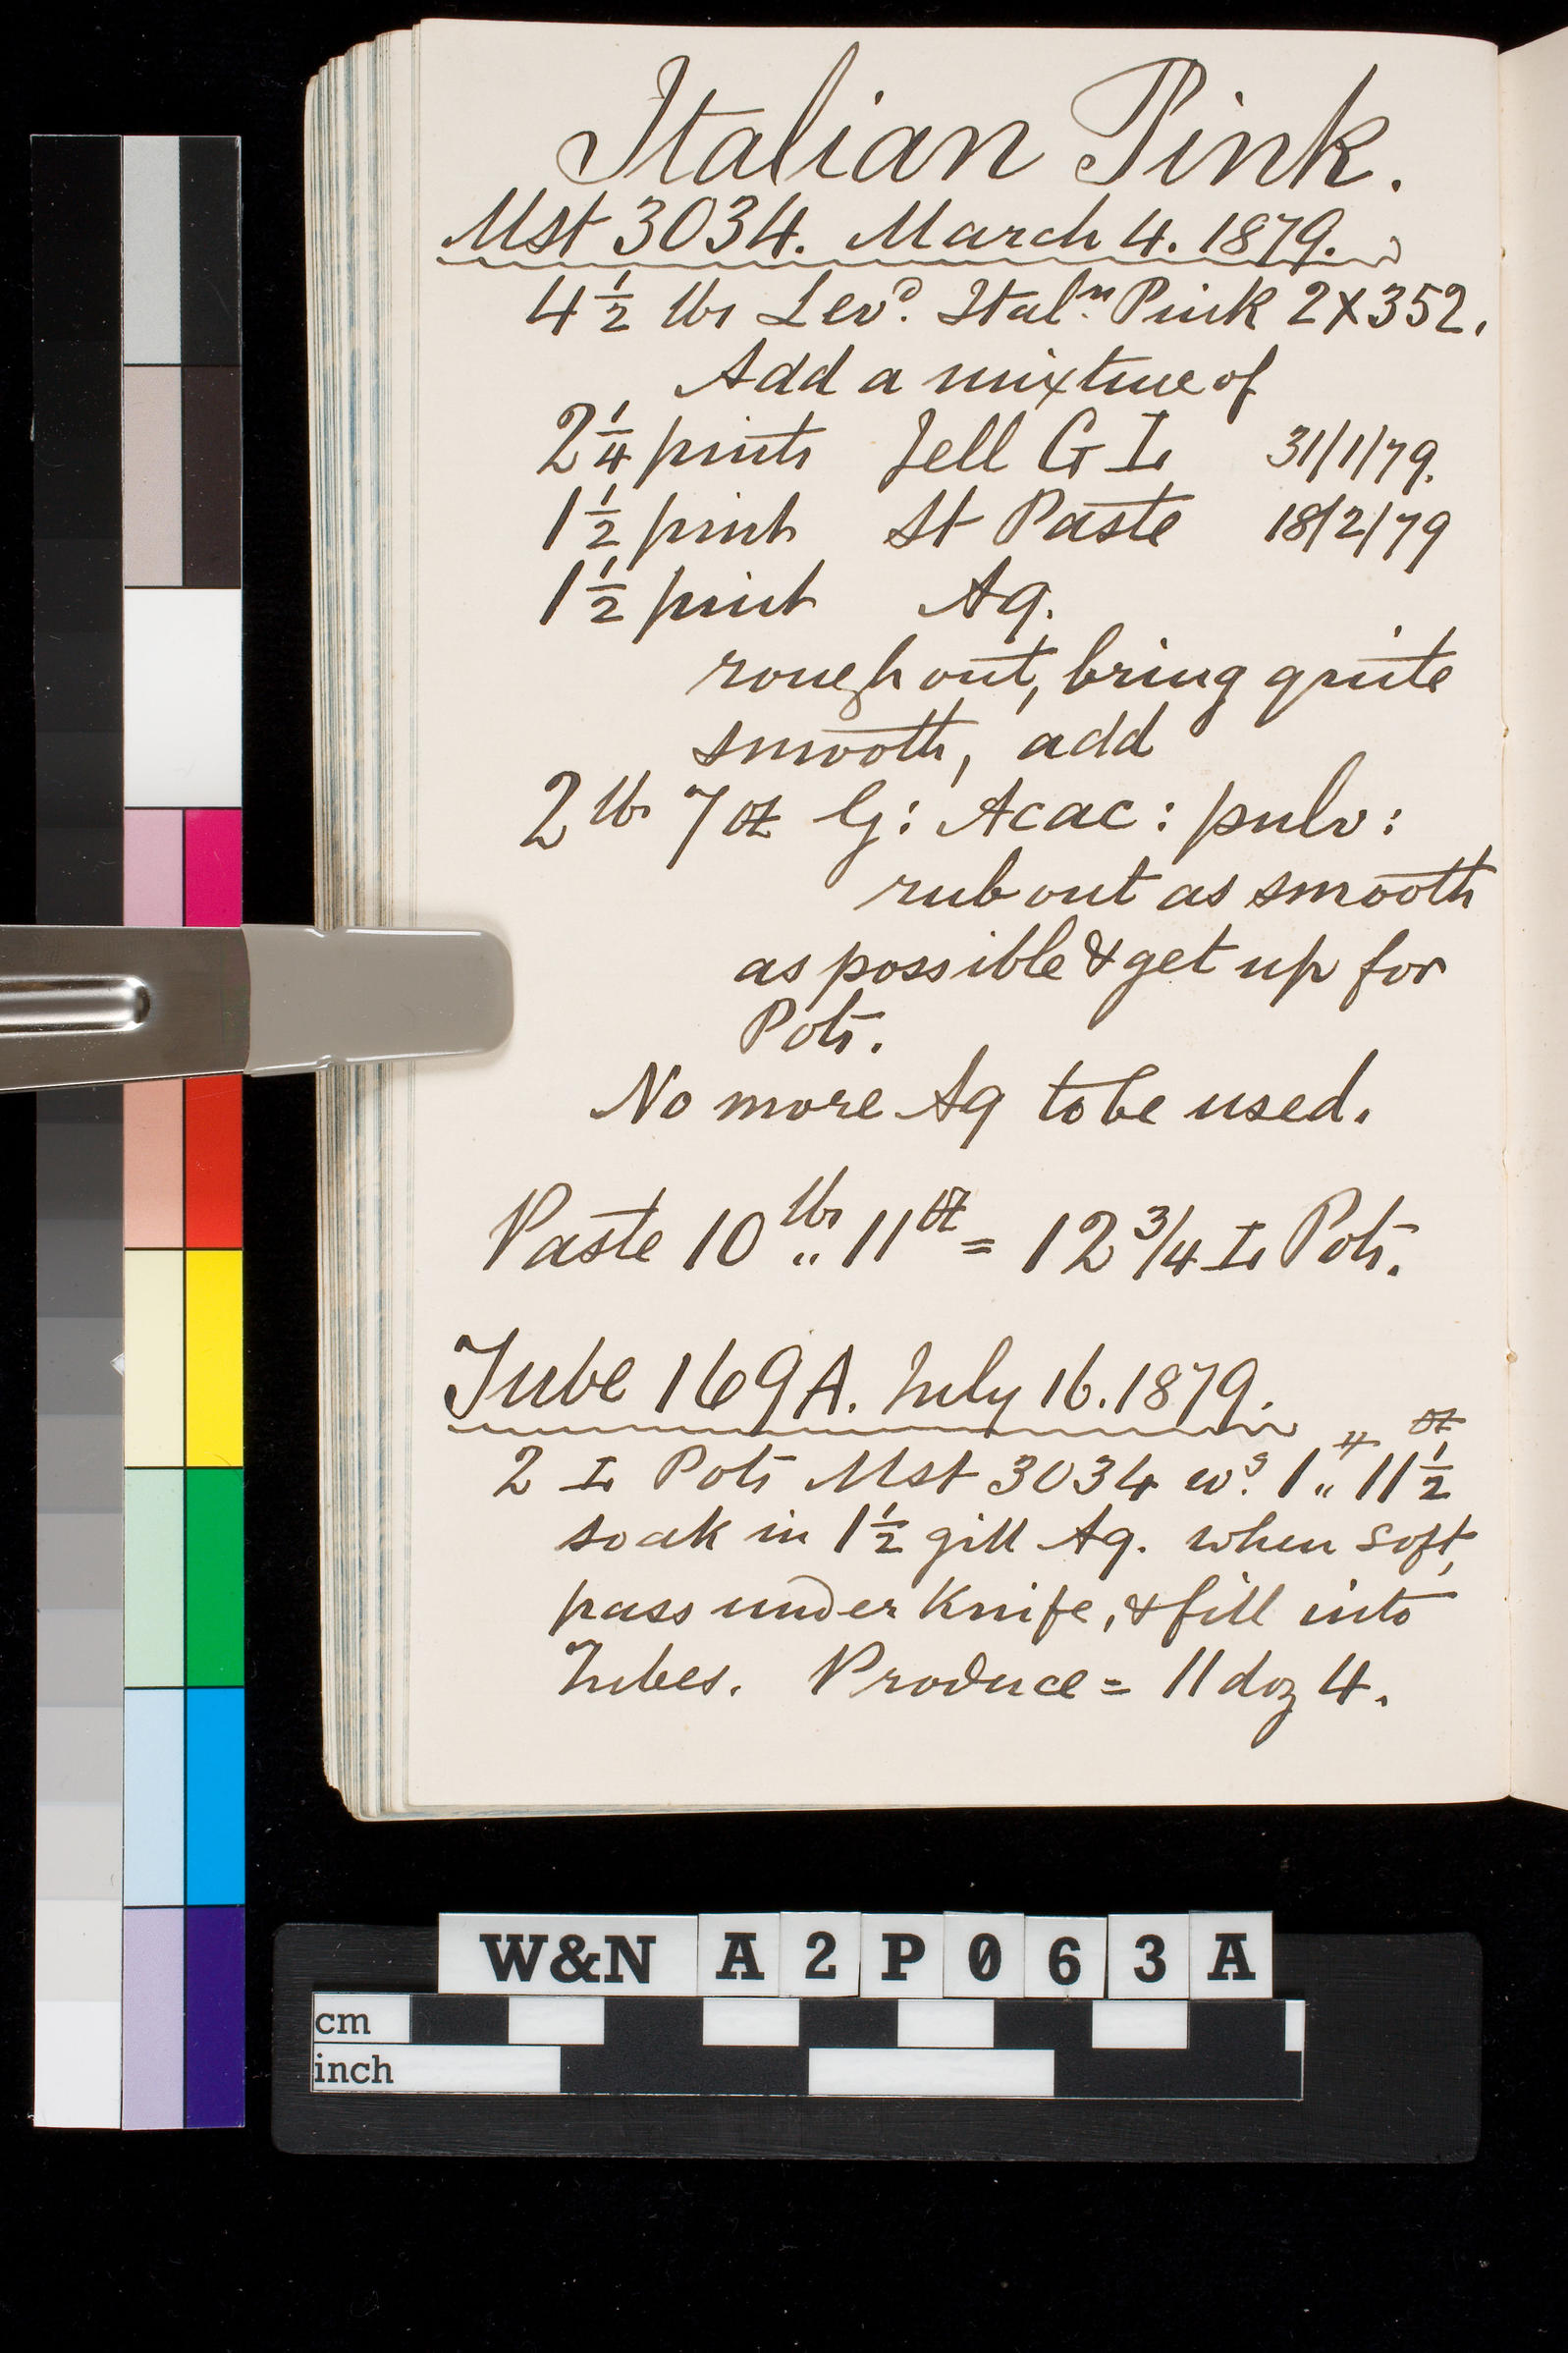 Italian Pink.
Mst 3034. March 4. 1879.
4 1/2 lbs Levd. Italn. Pink 2X352.
Add a mixture of
2 1/4 pints Jell G L 31/1/79.
1 1/2 pint St Paste 18/2/79
1 1/2 pint Aq.
rough out, bring quite
smooth, add
2 lbs 7 oz G: Acac: pulv:
rub out as smooth
as possible & get up for
Pots.
No more Aq to be used.
Paste 10 lbs " 11 oz = 12 3/4 L Pots.
Tube 169A. July 16. 1879.
2 L Pots Mst 3034 wg. 1 # " 11 1/2 oz
soak in 1 1/2 gill Aq. when soft,
pass under Knife, & fill into
Tubes. Produce = 11 doz 4.
W&N A 2 P 0 6 3 A
cm
inch